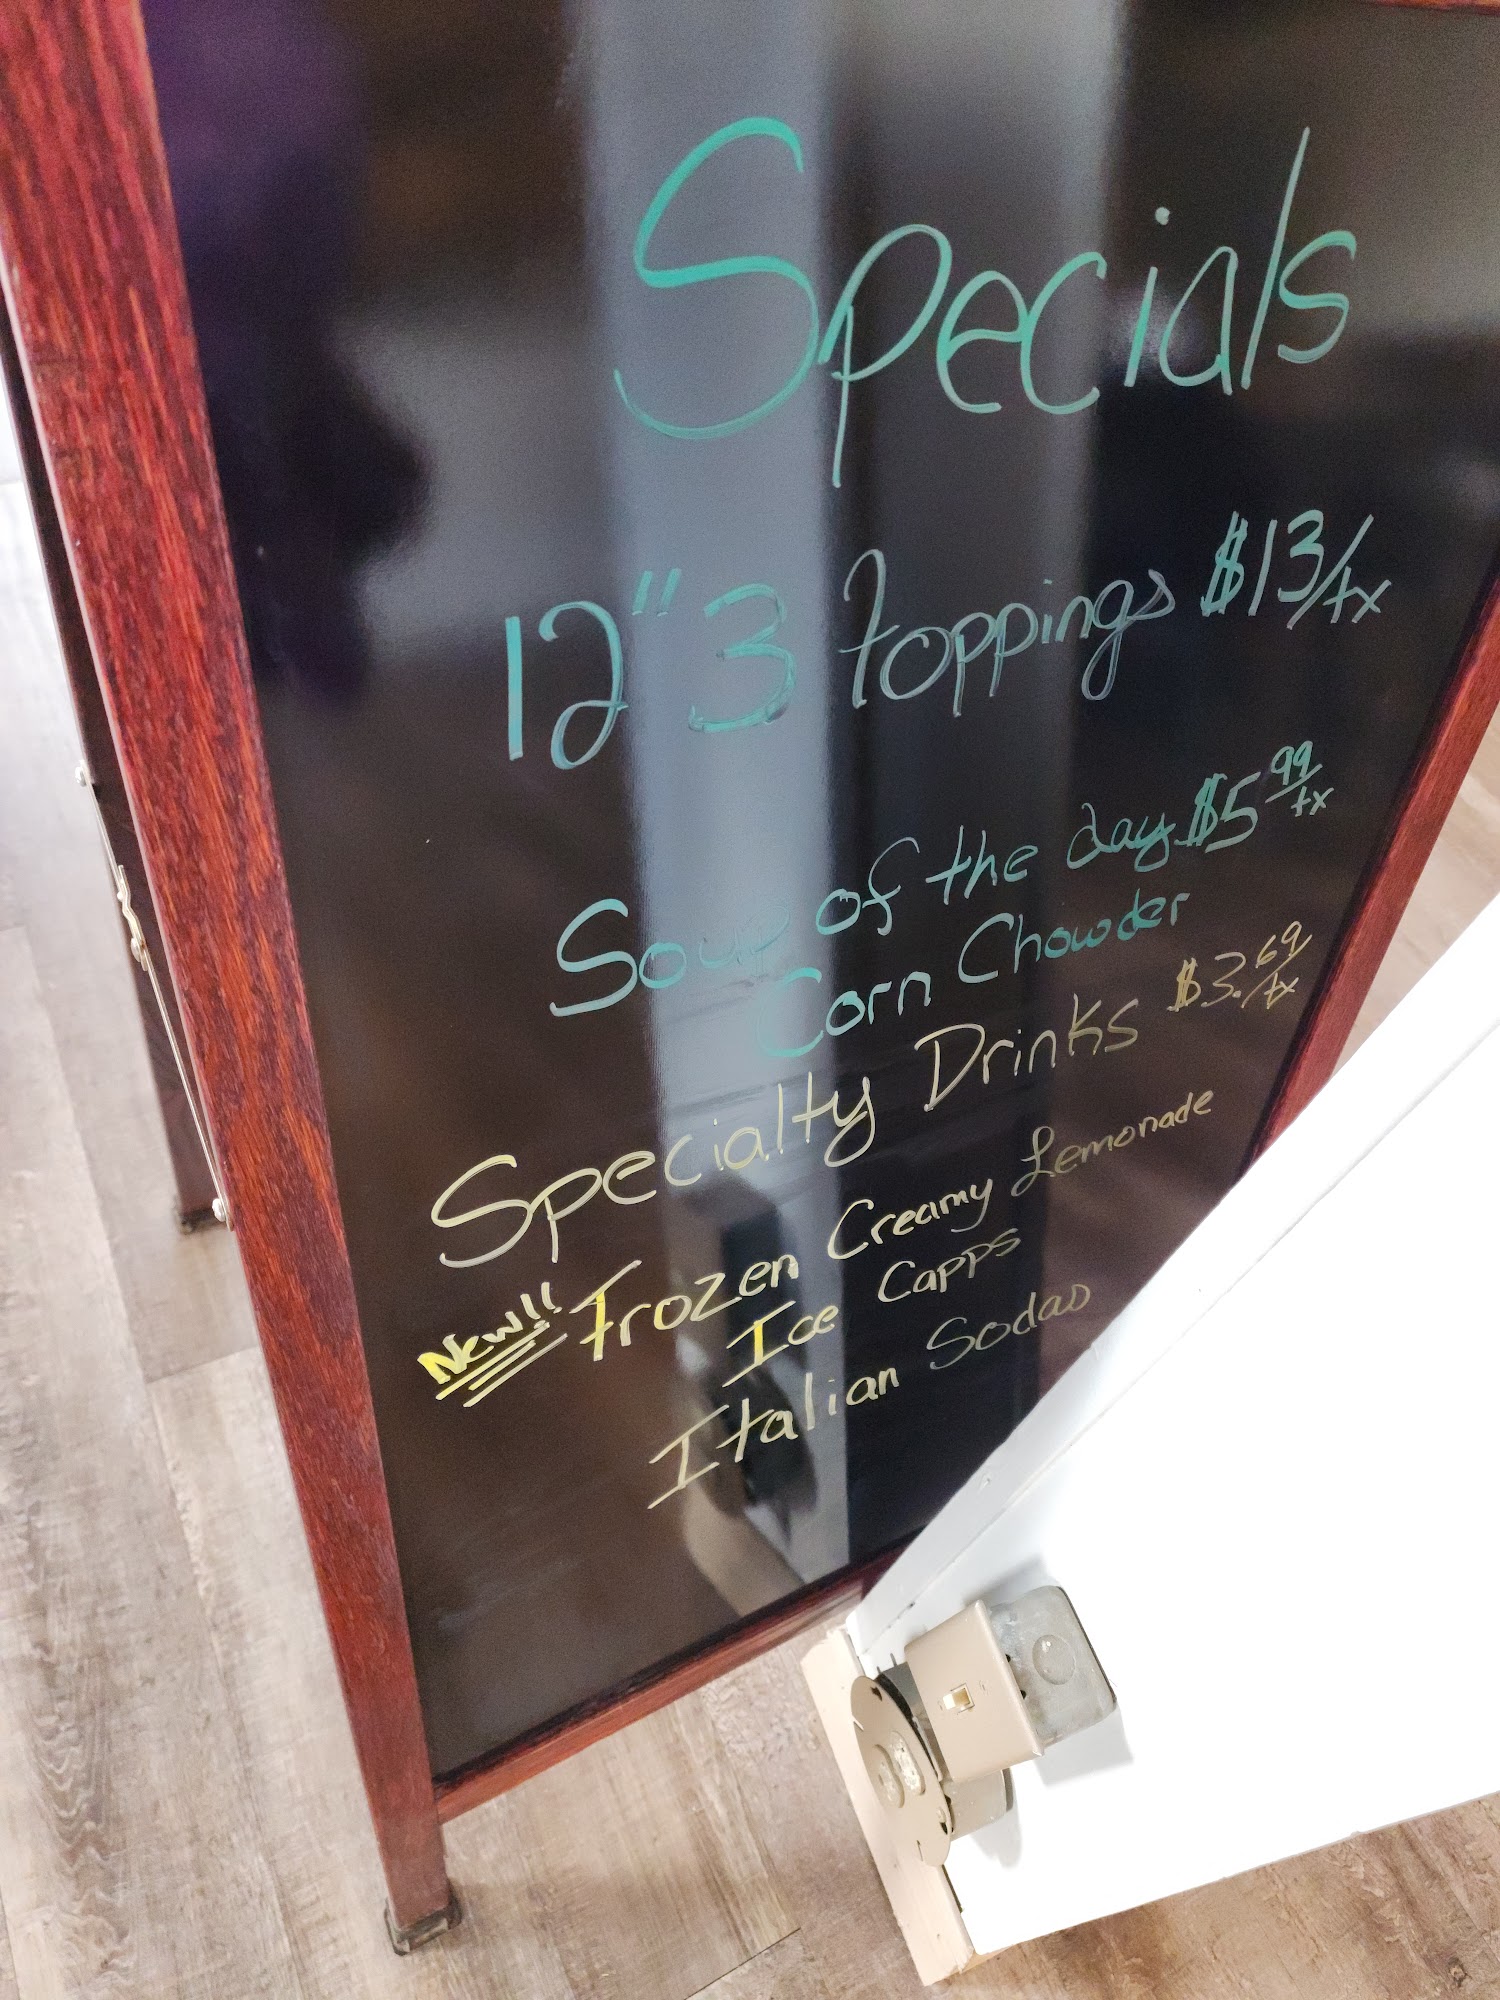 Specials
12" 3 toppings $13/tx
Soup of the day $5 99/tx
Corn Chowder
Specialty Drinks $3.69/tx
New!! Frozen Creamy Lemonade
Ice Capps
Italian Sodas